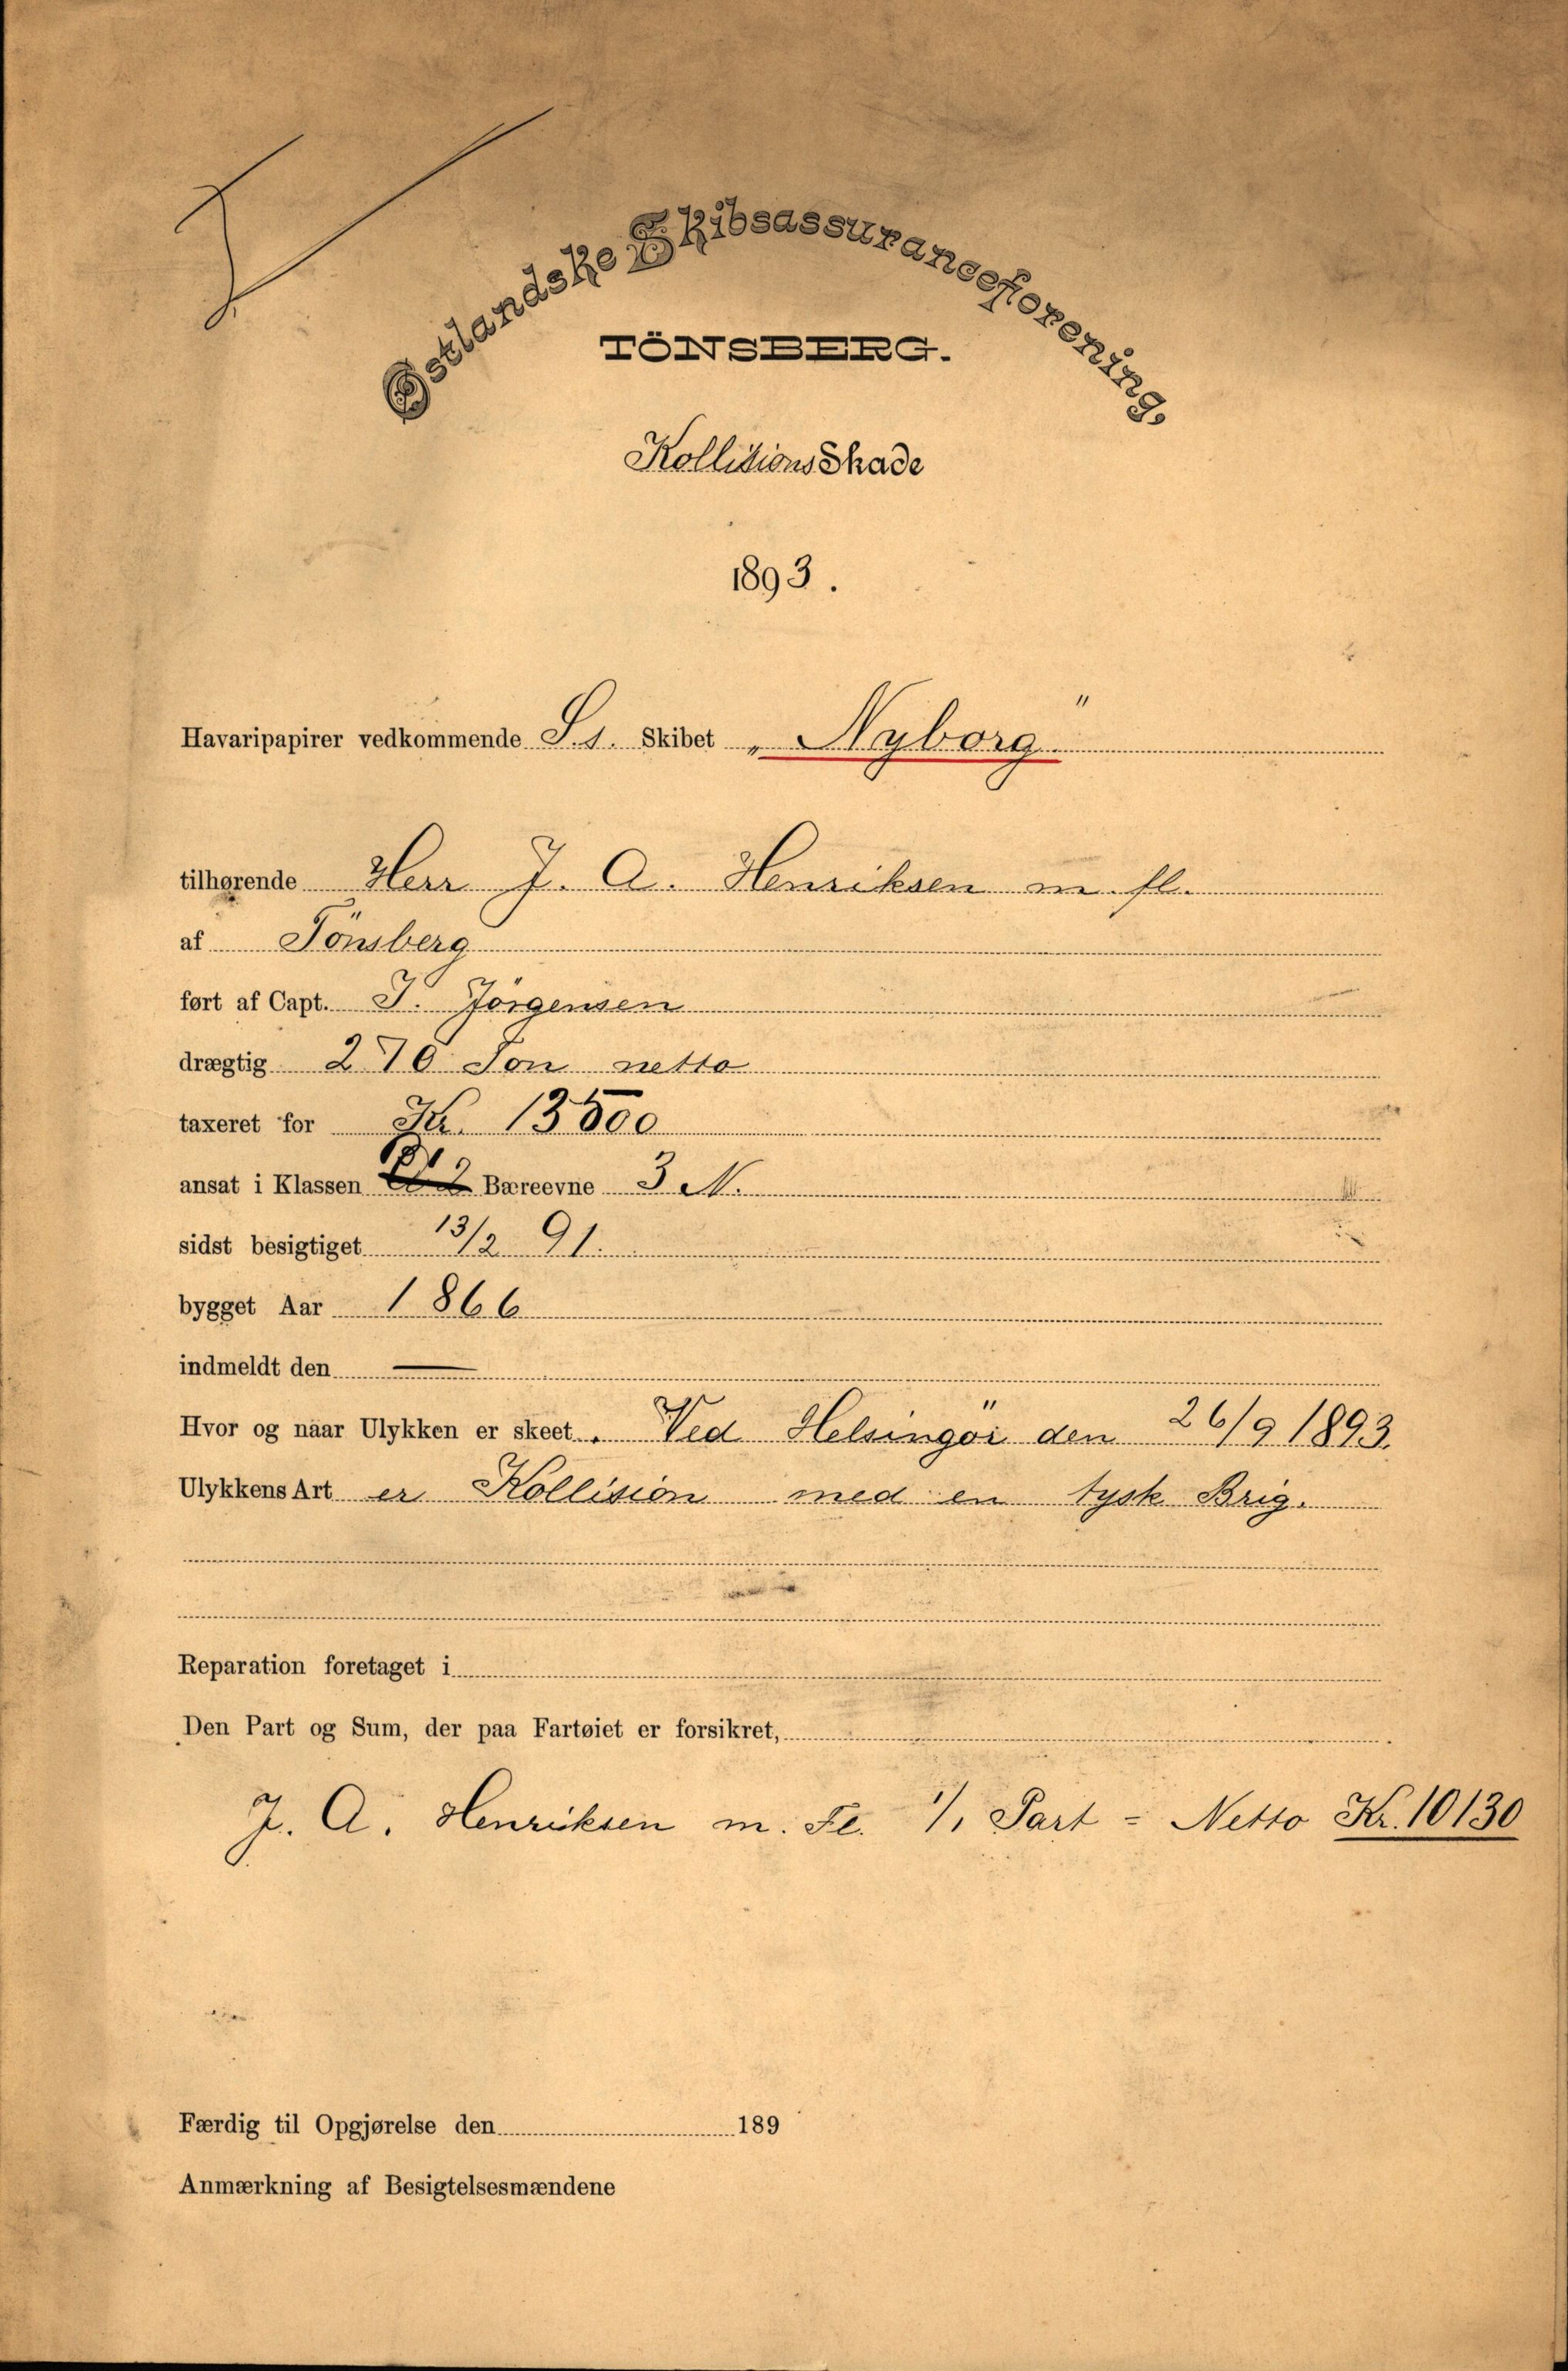 Østlandske Skibsassuranceforening,
TÖNSBERG.
KollisionsSkade
1893.
Havaripapirer vedkommende S.s. Skibet „Nyborg"
tilhørende Herr J. A. Henriksen m. fl.
af Tönsberg
ført af Capt. T. Jörgensen
drægtig 270 Ton netto
taxeret for Kr.
ansat i Klassen Bæreevne 3 N.
sidst besigtiget 13/2 91.
bygget Aar 1866
indmeldt den —
Hvor og naar Ulykken er skeet. Ved Helsingör den 26/9 1893.
Ulykkens Art er Kollision med en tysk Brig.
Reparation foretaget i
Den Part og Sum, der paa Fartøiet er forsikret,
J. A. Henriksen m. Fl. 1/1 Part = Netto Kr. 10130
Færdig til Opgjørelse den 189
Anmærkning af Besigtelsesmændene